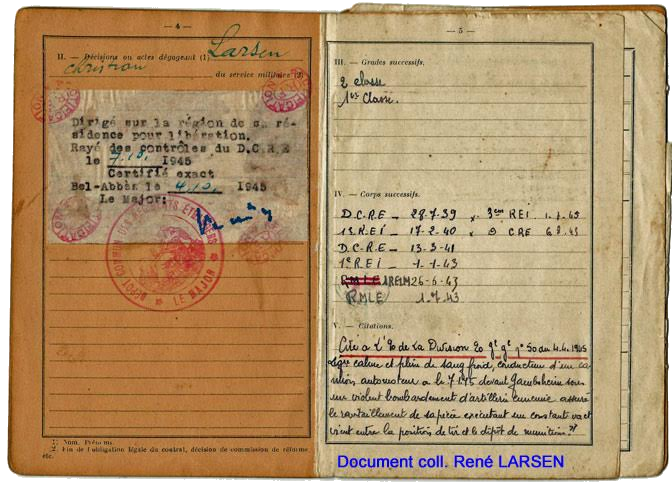 — 4 —
II. — Décisions ou actes dégageant (1) Larsen
Christian du service militaire (2)
Dirigé sur la région de sa ré-
sidence pour libération.
Rayé des contrôles du D.C.R.E
le 1945
Certifié exact
Bel-Abbès le 1945
Le Major:
DEPOT COMMUN DES REGIMENTS ETRANGERS
★ LE MAJOR ★
(1) Nom, Prénoms
(2) Fin de l'obligation légale du contrat, décision de commission de réforme
etc.
— 5 —
III. — Grades successifs.
2 classe
1ère Classe.
IV. — Corps successifs.
D.C.R.E — 28.7.39 × 3em REI
1°R.E.I — 17.2.40 × CRE
D.C.R.E — 13.3.41
1°R.E.I — 1.1.43
R.M.L.E 1REIM 26-6-43
RMLE 1.7.43
V. — Citations.
Cité à L'O de La Division n° 50 du 4.4.1945
calme et plein de sang froid, conducteur d'un ca
mion automoteur a le 7.1.45 devant Gambsheim sous
un violent bombardement d'artillerie ennemie assuré
le ravitaillement de sa pièce exécutant un constante va et
vient entre la position de tir et le dépôt de munitions."
Document coll. René LARSEN